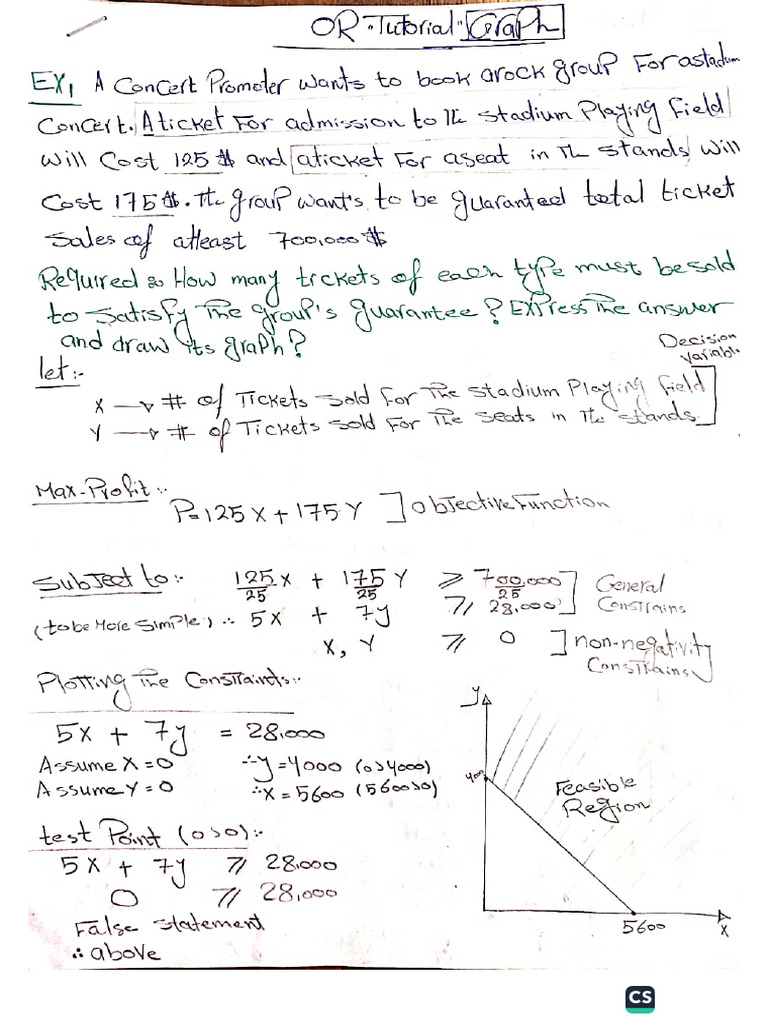 OR-Tutorial-"Graph"
EX1 A Concert Promoter wants to book arock group For astadium
Concert. A ticket For admission to the stadium Playing field
will Cost 125 $ and aticket For aseat in The stands will
Cost 175$. The group want's to be guaranteed total ticket
Sales of atleast 700,000 $
Required: How many tickets of each type must be sold
to satisfy The group's guarantee? Express The answer
and draw its graph?
Decision
Variable
let:-
X → # of Tickets sold for The Stadium Playing Field
Y → # of Tickets sold For The seats in The stands
Max-Profit:-
P=125X+175Y ] Objective Function
Subject to:- 125/25 X + 175/25 Y ≥ 700,000/25 ] General
(to be More Simple) ∴ 5X + 7y ≥ 28,000 Constrains
X, Y ≥ 0 ] non-negativity
Constrains
Plotting The Constraints:-
5X + 7y = 28.000
Assume X=0 ∴y=4000 (0,4000)
Assume Y=0 ∴X=5600 (5600,0)
test Point (0,0):-
5X + 7y ≥ 28.000
0 ≥ 28,000
False statement
∴above
y
400
Feasible
Region
5600
X
CS